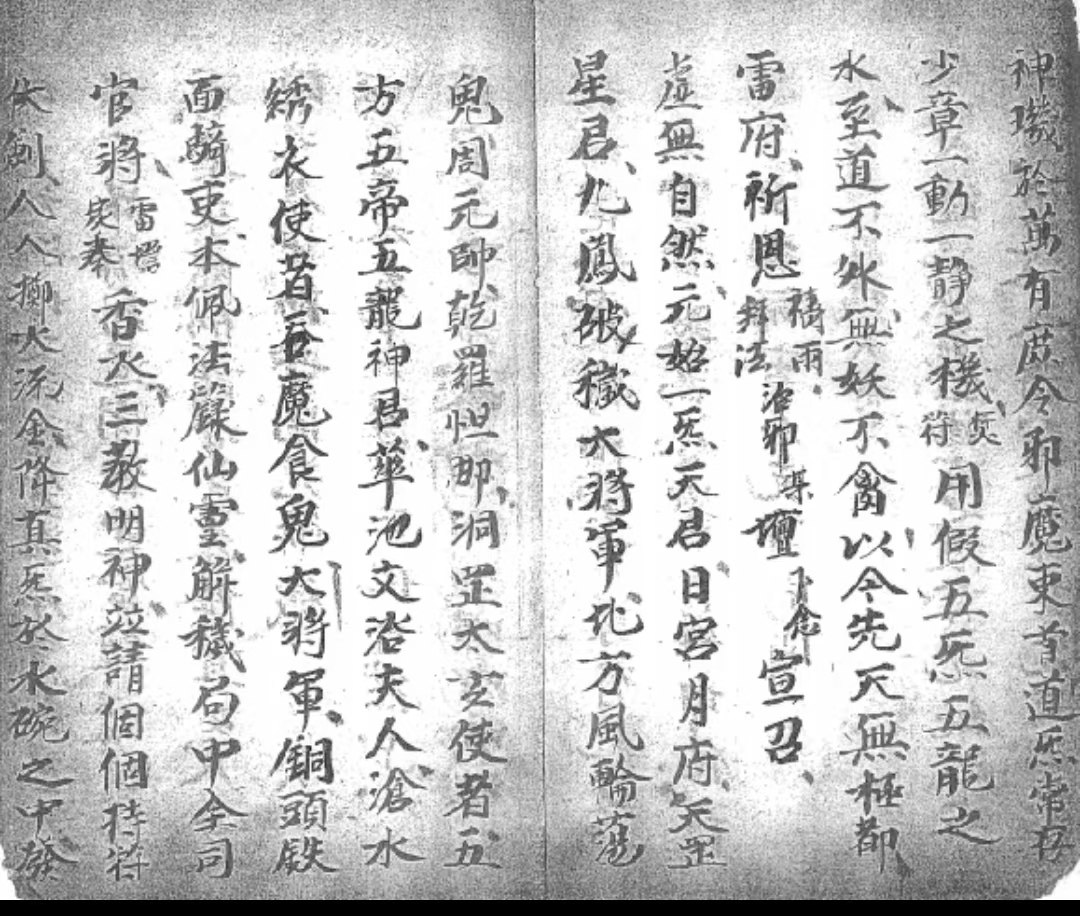 神璣於萬有庶令邪魔束首道炁常存
少章一動一靜之機焚符用假五炁五龍之
水至道不外無妖不禽以今先天無極都
雷府祈恩禱雨拜法治邪某壇下念宣召
虛無自然元始一炁天君日宮月府天罡
星君九鳳破穢大將軍北方風輪蕩
鬼周元帥乾羅怛那洞罡太玄使者五
方五帝五龍神君華池文浴夫人滄水
綉衣使者吞魔食鬼大將軍銅頭鉄
面騎吏本佩法籙仙靈解穢局中全司
官將雷壇焚奉香火三教明神竝請個個持符
仗劍人人擲火流金降真炁於水碗之中發